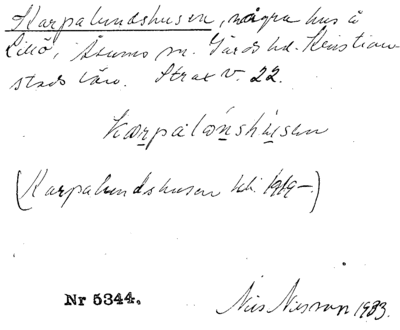 Karpalundshusen, några hus å
Lillö, Åsums sn. Gärds hd. Kristian-
stads län. Strax v. 22.
Karpalónshúsen
(Karpalundshusen 1919-)
Nr 5344.
Nils Nilsson 1933.